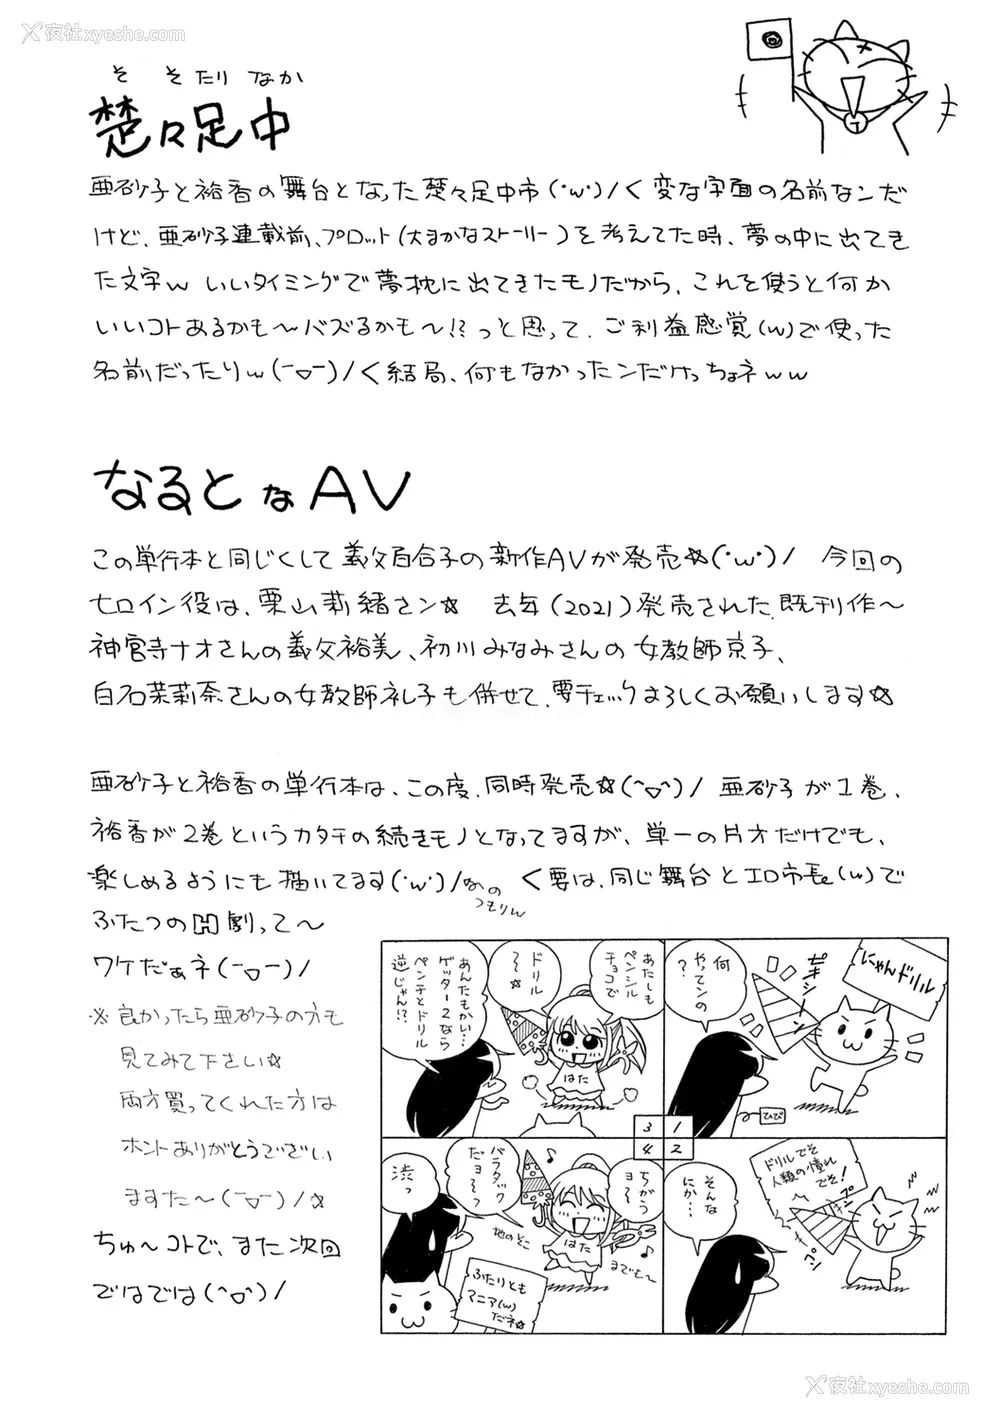 夜社xyeshe.com
そ そたり なか
楚々足中
亜砂子と裕香の舞台となった楚々足中市(・w・)/く変な字面の名前なンだ
けど、亜砂子連載前、プロット(大まかなストーリー)を考えてた時、夢の中に出てき
た文字w いいタイミングで夢枕に出てきたモノだから、これを使うと何か
いいコトあるかも〜バズるかも〜!?っと思って、ご利益感覚(w)で使った
名前だったりw(ー▽ー)/く結局、何もなかったンだけっちょネww
なるとなAV
この単行本と同じくして義父百合子の新作AVが発売☆(・w・)/ 今回の
ヒロイン役は、栗山莉緒さン☆ 去年(2021)発売された、既刊作〜
神宮寺ナオさんの義父裕美、初川みなみさんの女教師京子、
白石茉莉奈さんの女教師礼子も併せて、要チェックよろしくお願いします☆
亜砂子と裕香の単行本は、この度、同時発売☆(^▽^)/ 亜砂子が1巻、
裕香が2巻というカタチの続きモノとなってますが、単一の片方だけでも、
楽しめるようにも描いてます(・w・)/なの
つもりw
く要は、同じ舞台とエロ市長(w)で
ふたつのH劇って〜
ワケだぁネ(ー▽ー)/
※良かったら亜砂子の方も
見てみて下さい☆
両方買ってくれた方は
ホントありがとうござい
ますた〜(ー▽ー)/☆
ちゅ〜コトで、また次回
ではでは(^▽^)/
にゃんドリル
何
やってンの
?
ひび
1
ドリルでそ
人類の憧れ
でそ!
そんな
にか…
2
あたしも
ペンシル
チョコで
ドリル
〜☆
あんたもかい…
ゲッター2なら
ペンチとドリル
逆じゃん!?
はた
3
ちがうっ
ョ〜っ
バラタック
だョ〜っ
渋っ
地のそこ
までも〜
はた
ふたりとも
マニア(w)
だネ☆
4
夜社xyeshe.com